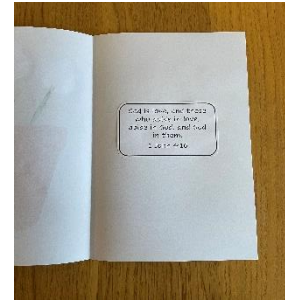 God is love, and those
who abide in love,
abide in God, and God
in them.
1 John 4:16